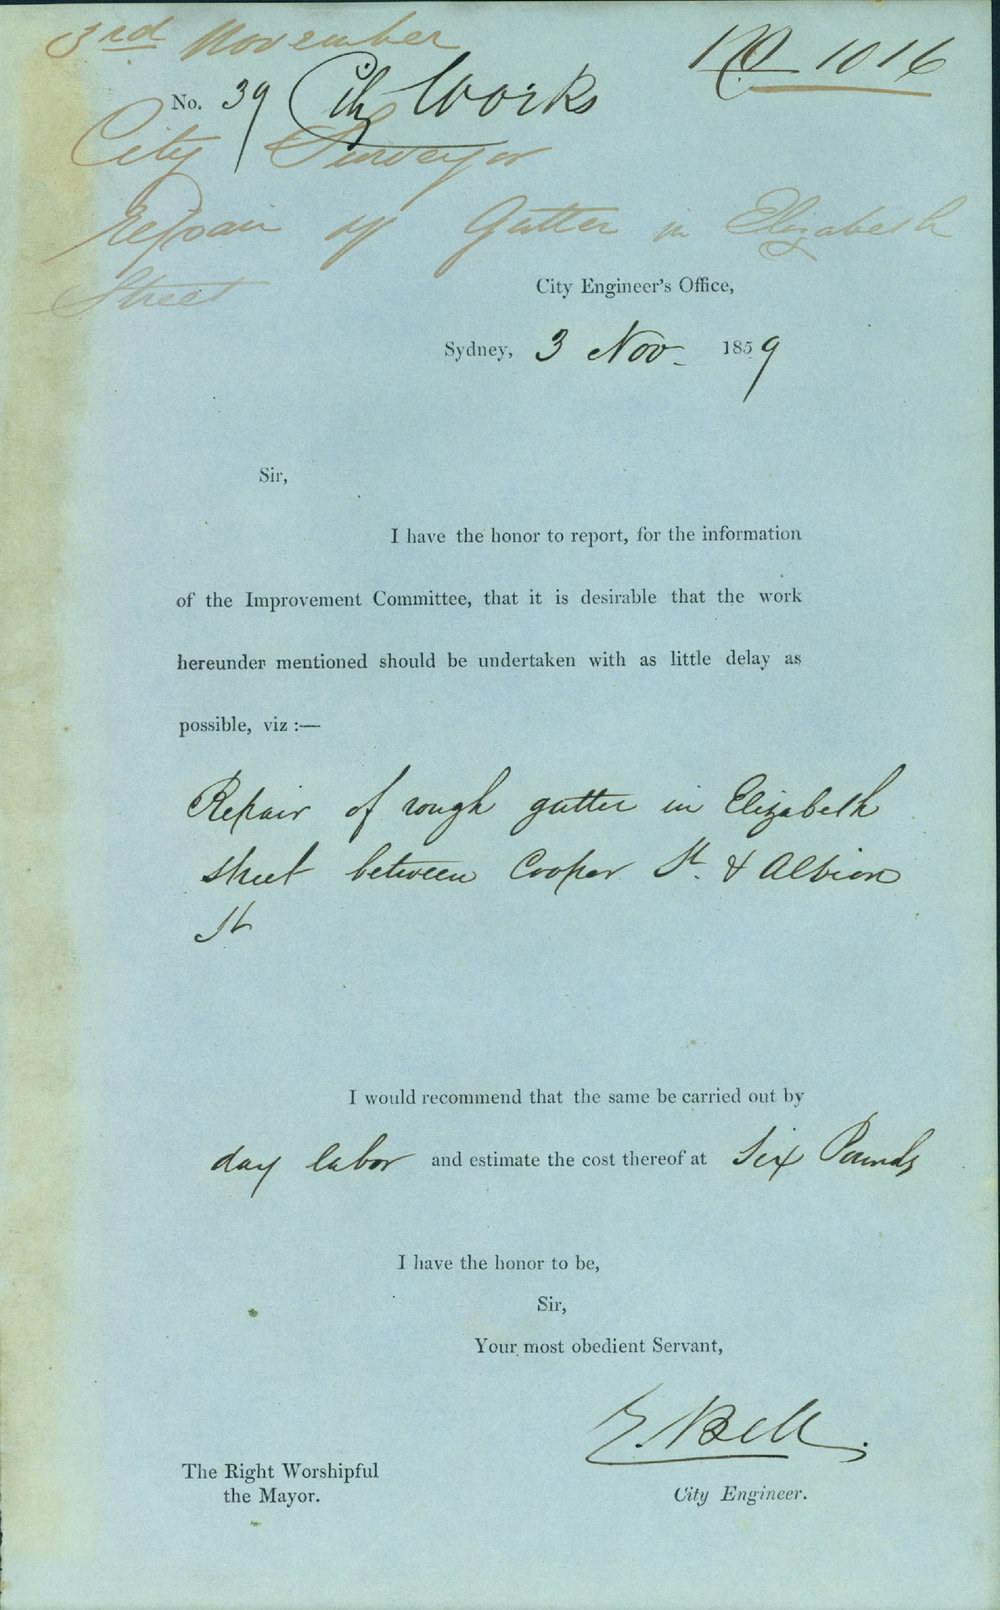 3rd November
No 1016
No. 39 City Works
City Surveyor
Repair of Gutter in Elizabeth
Street
City Engineer's Office,
Sydney, 3 Nov 1859
Sir,
I have the honor to report, for the information
of the Improvement Committee, that it is desirable that the work
hereunder mentioned should be undertaken with as little delay as
possible, viz :—
Repair of rough gutter in Elizabeth
street between Cooper St. & Albion
St
I would recommend that the same be carried out by
day labor and estimate the cost thereof at Six Pounds
I have the honor to be,
Sir,
Your most obedient Servant,
E. Bell.
The Right Worshipful
the Mayor.
City Engineer.